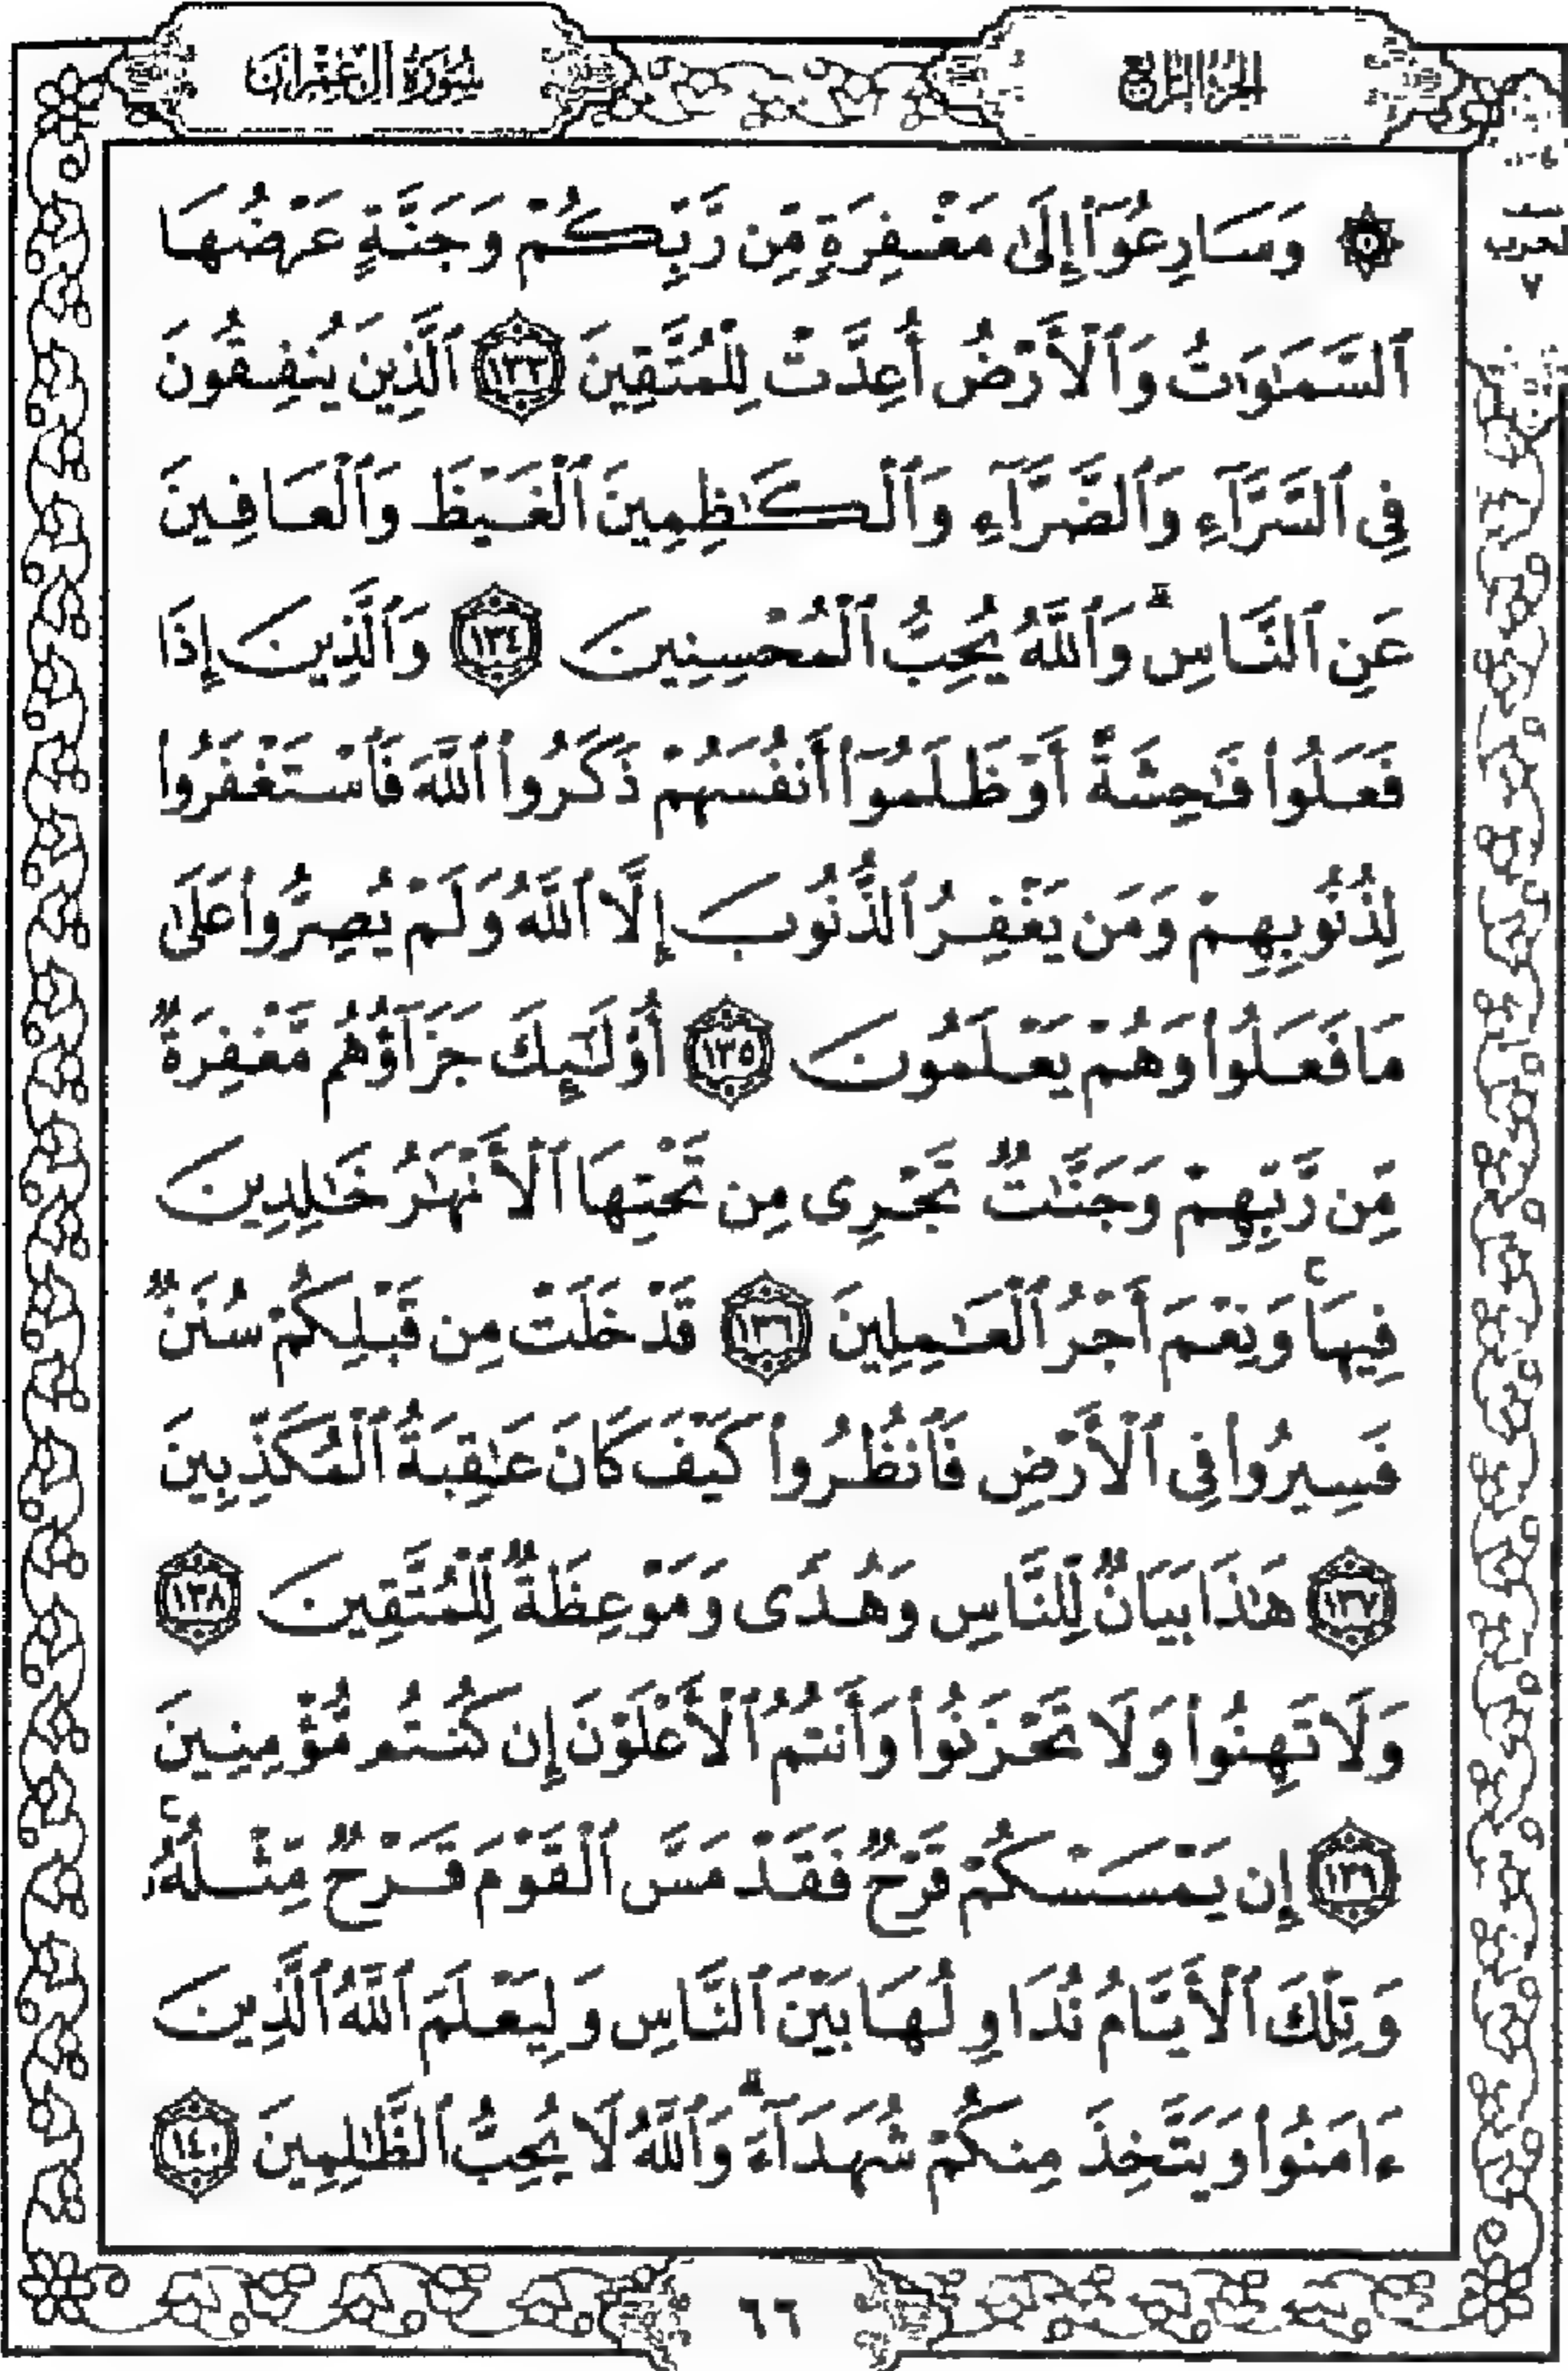 الجزء الرابع
سورة آل عمران
الحزب
٧
۞ وَسَارِعُوٓا۟ إِلَىٰ مَغْفِرَةٍ مِّن رَّبِّكُمْ وَجَنَّةٍ عَرْضُهَا
ٱلسَّمَـٰوَٰتُ وَٱلْأَرْضُ أُعِدَّتْ لِلْمُتَّقِينَ ١٣٣ ٱلَّذِينَ يُنفِقُونَ
فِى ٱلسَّرَّآءِ وَٱلضَّرَّآءِ وَٱلْكَـٰظِمِينَ ٱلْغَيْظَ وَٱلْعَافِينَ
عَنِ ٱلنَّاسِ ۗ وَٱللَّهُ يُحِبُّ ٱلْمُحْسِنِينَ ١٣٤ وَٱلَّذِينَ إِذَا
فَعَلُوا۟ فَـٰحِشَةً أَوْ ظَلَمُوٓا۟ أَنفُسَهُمْ ذَكَرُوا۟ ٱللَّهَ فَٱسْتَغْفَرُوا۟
لِذُنُوبِهِمْ وَمَن يَغْفِرُ ٱلذُّنُوبَ إِلَّا ٱللَّهُ وَلَمْ يُصِرُّوا۟ عَلَىٰ
مَا فَعَلُوا۟ وَهُمْ يَعْلَمُونَ ١٣٥ أُو۟لَـٰٓئِكَ جَزَآؤُهُم مَّغْفِرَةٌ
مِّن رَّبِّهِمْ وَجَنَّـٰتٌ تَجْرِى مِن تَحْتِهَا ٱلْأَنْهَـٰرُ خَـٰلِدِينَ
فِيهَا ۚ وَنِعْمَ أَجْرُ ٱلْعَـٰمِلِينَ ١٣٦ قَدْ خَلَتْ مِن قَبْلِكُمْ سُنَنٌ
فَسِيرُوا۟ فِى ٱلْأَرْضِ فَٱنظُرُوا۟ كَيْفَ كَانَ عَـٰقِبَةُ ٱلْمُكَذِّبِينَ
١٣٧ هَـٰذَا بَيَانٌ لِّلنَّاسِ وَهُدًى وَمَوْعِظَةٌ لِّلْمُتَّقِينَ ١٣٨
وَلَا تَهِنُوا۟ وَلَا تَحْزَنُوا۟ وَأَنتُمُ ٱلْأَعْلَوْنَ إِن كُنتُم مُّؤْمِنِينَ
١٣٩ إِن يَمْسَسْكُمْ قَرْحٌ فَقَدْ مَسَّ ٱلْقَوْمَ قَرْحٌ مِّثْلُهُۥ ۚ
وَتِلْكَ ٱلْأَيَّامُ نُدَاوِلُهَا بَيْنَ ٱلنَّاسِ وَلِيَعْلَمَ ٱللَّهُ ٱلَّذِينَ
ءَامَنُوا۟ وَيَتَّخِذَ مِنكُمْ شُهَدَآءَ ۗ وَٱللَّهُ لَا يُحِبُّ ٱلظَّـٰلِمِينَ ١٤٠
٦٦